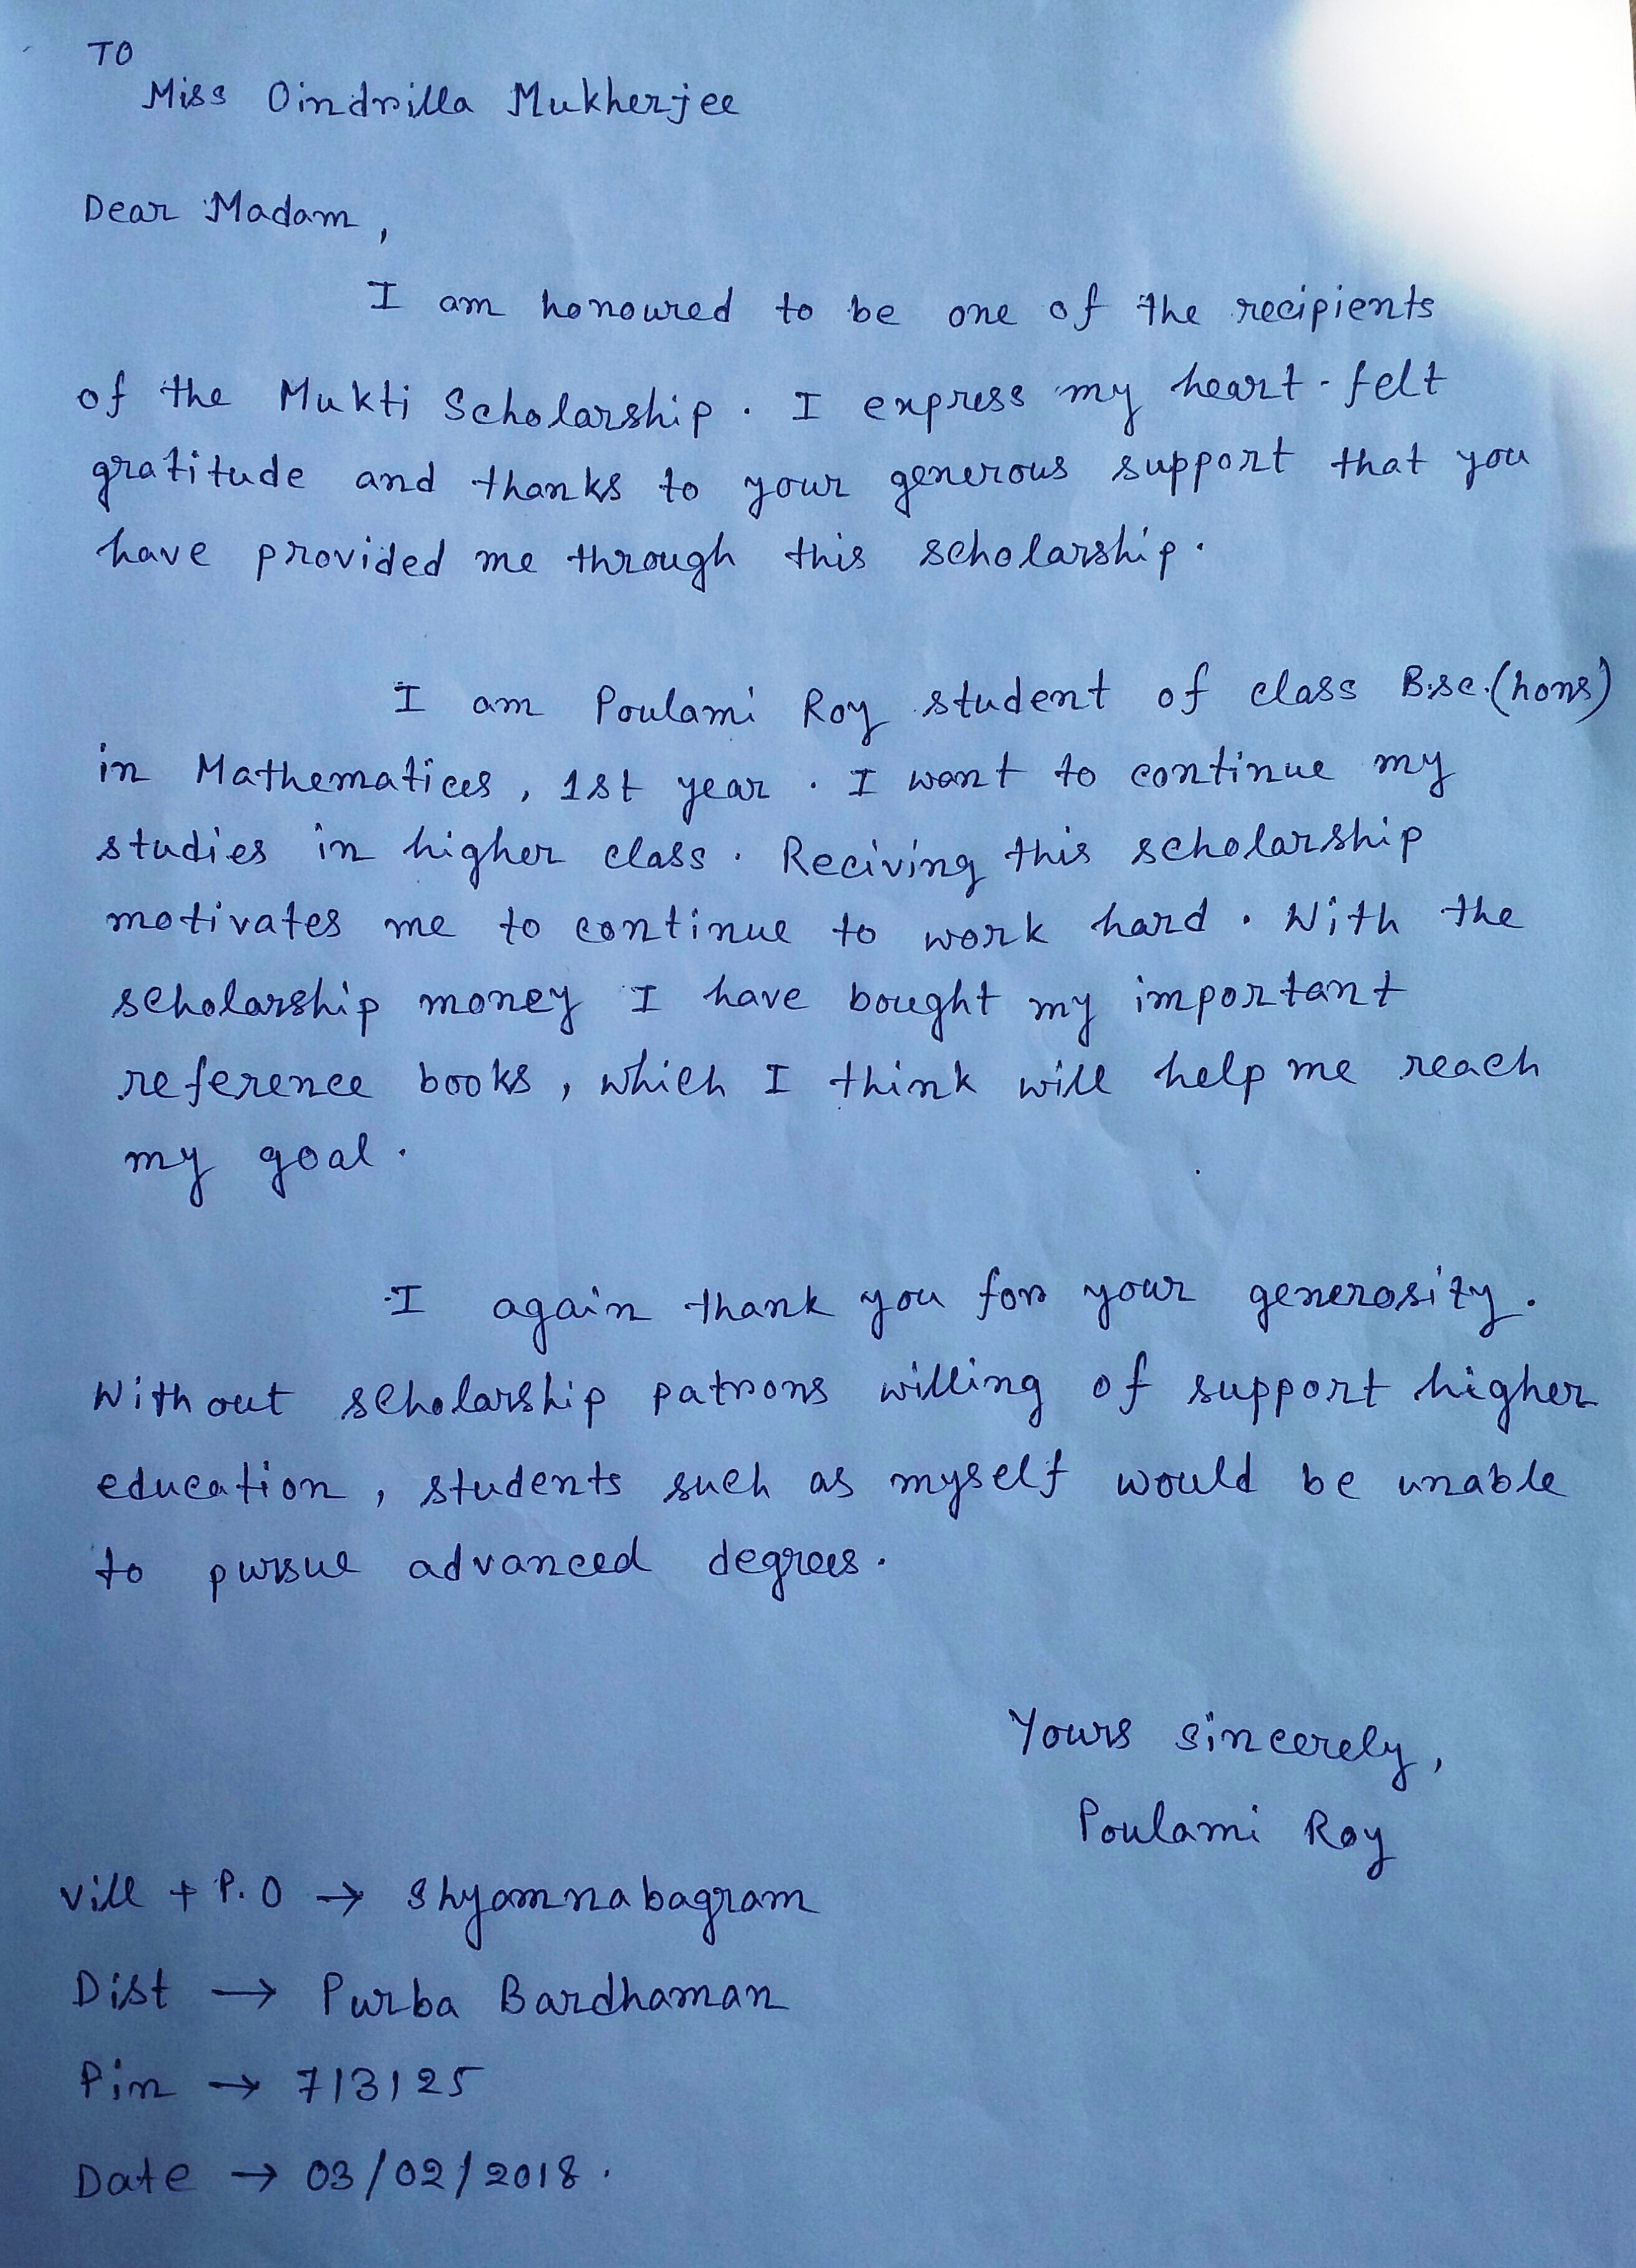 TO
Miss Oindrilla Mukherjee
Dear Madam,
I am honoured to be one of the recipients
of the Mukti Scholarship. I express my heart-felt
gratitude and thanks to your generous support that you
have provided me through this scholarship.
I am Poulami Roy student of class B.sc.(hons)
in Mathematices, 1st year. I want to continue my
studies in higher class. Reciving this scholarship
motivates me to continue to work hard. With the
scholarship money I have bought my important
reference books, which I think will help me reach
my goal.
I again thank you for your generosity.
Without scholarship patrons willing of support higher
education, students such as myself would be unable
to pursue advanced degrees.
Yours sincerely,
Poulami Roy
Vill + P.O → Shyamnabagram
Dist → Purba Bardhaman
Pin → 713125
Date → 03/02/2018.